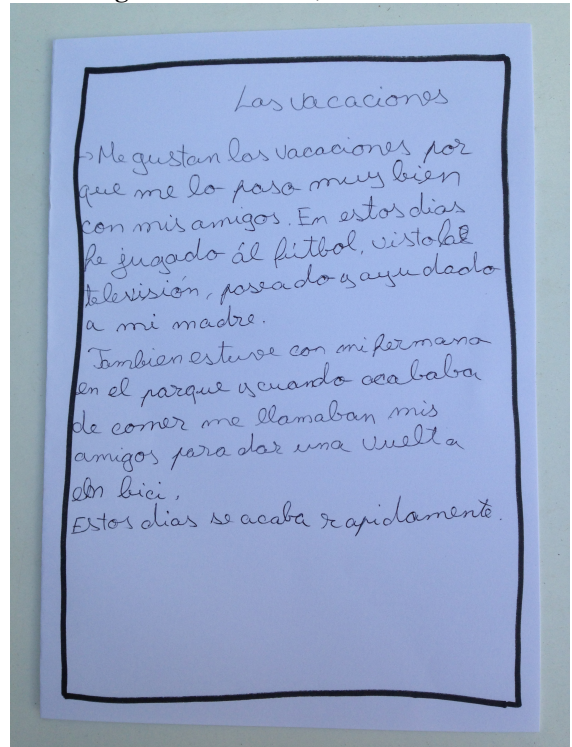 Las vacaciones
→ Me gustan las vacaciones por
que me lo paso muy bien
con mis amigos. En estos dias
he jugado ál fútbol, visto la
televisión, paseado y ayudado
a mi madre.
Tambien estuve con mi hermana
en el parque y cuando acababa
de comer me llamaban mis
amigos para dar una vuelta
en bici.
Estos dias se acaba rapidamente.